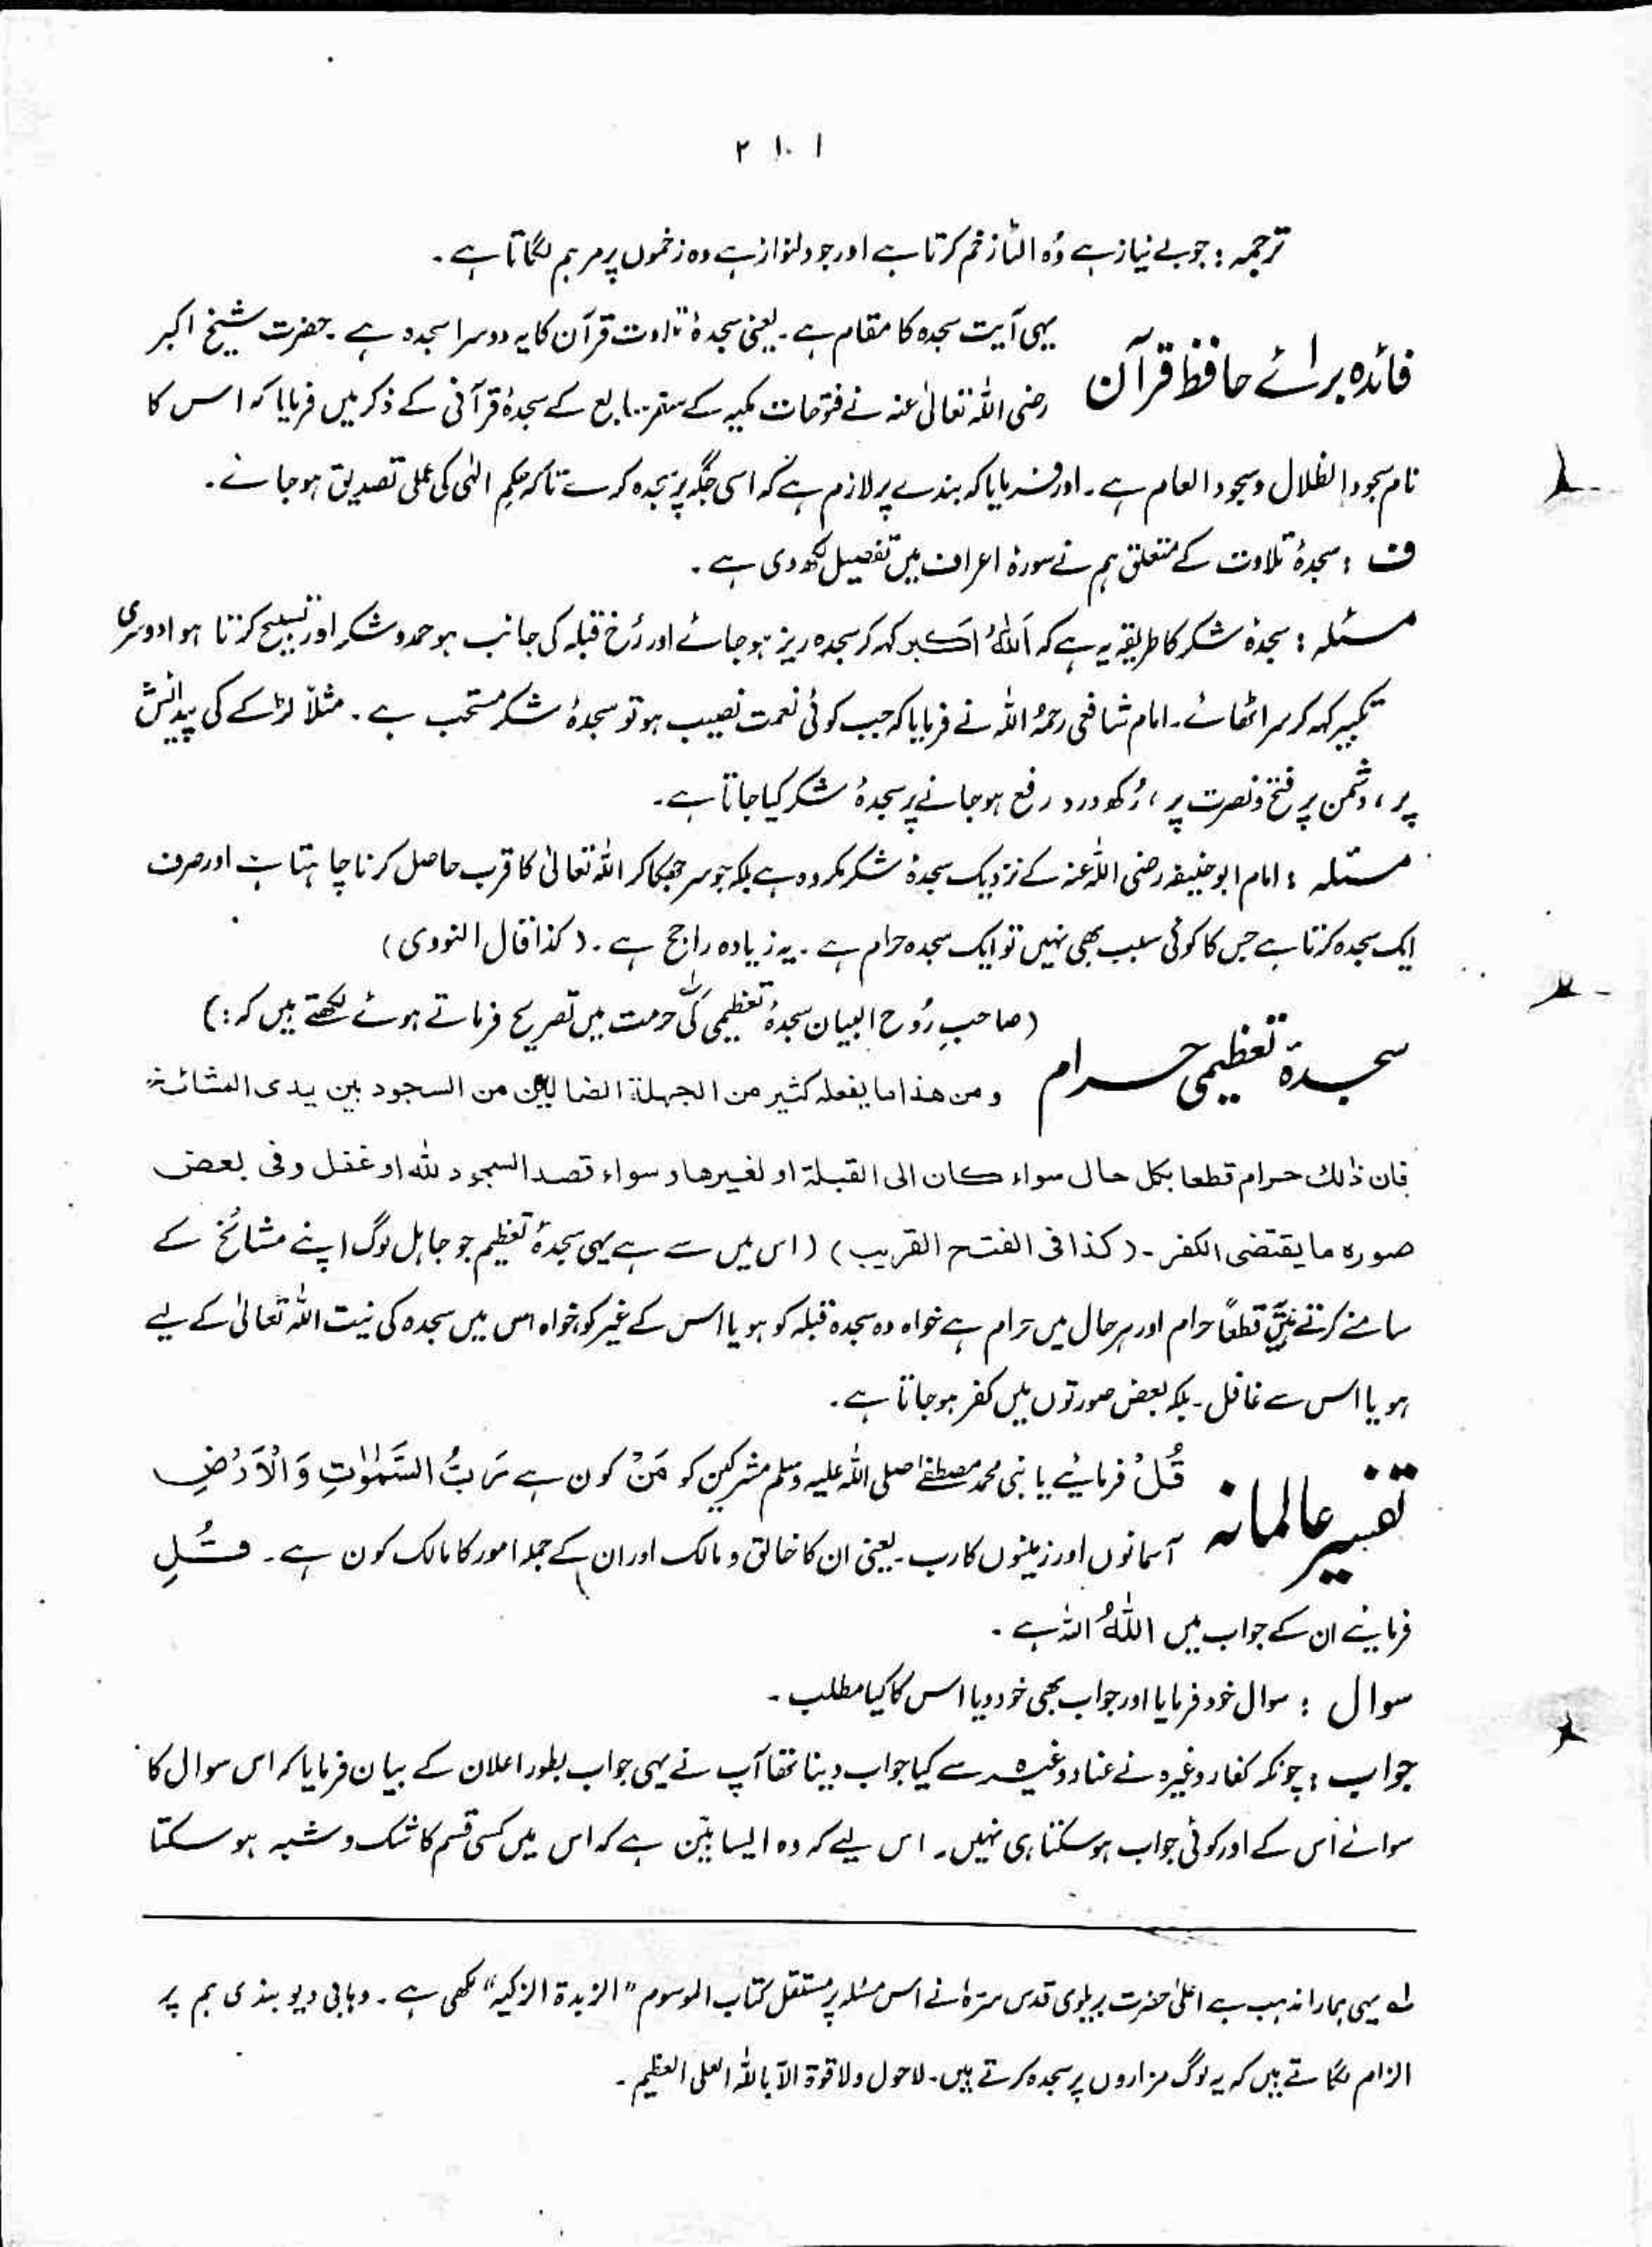 ۲۱۰۱
ترجمہ : جو بے نیاز ہے وُہ الٹا زخم کرتا ہے اور جو دلنواز ہے وہ زخموں پر مرہم لگاتا ہے ۔
فائدہ برائے حافظ قرآن
یہی آیت سجدہ کا مقام ہے ۔ یعنی سجدۂ تلاوت قرآن کا یہ دوسرا سجدہ ہے ۔ حضرت شیخ اکبر
رضی اللہ تعالیٰ عنہ نے فتوحات مکیہ کے سفر سابع کے سجدۂ قرآنی کے ذکر میں فرمایا کہ اس کا
نام سجود الظلال و سجود العام ہے ۔ اور فرمایا کہ بندے پر لازم ہے کہ اسی جگہ پر سجدہ کرے تاکہ حکمِ الٰہی کی عملی تصدیق ہو جائے ۔
ف : سجدۂ تلاوت کے متعلق ہم نے سورۂ اعراف میں تفصیل لکھ دی ہے ۔
مسئلہ : سجدۂ شکر کا طریقہ یہ ہے کہ اَللہُ اَکبر کہہ کر سجدہ ریز ہو جائے اور رُخ قبلہ کی جانب ہو حمد و شکر اور تسبیح کرتا ہوا دوسری
تکبیر کہہ کر سر اٹھائے ۔ امام شافعی رحمہُ اللہ نے فرمایا کہ جب کوئی نعمت نصیب ہو تو سجدۂ شکر مستحب ہے ۔ مثلاً لڑکے کی پیدائش
پر ، دشمن پر فتح و نصرت پر ، دُکھ درد رفع ہو جانے پر سجدۂ شکر کیا جاتا ہے ۔
مسئلہ : امام ابوحنیفہ رضی اللہ عنہ کے نزدیک سجدۂ شکر مکروہ ہے بلکہ جو سر جھکا کر اللہ تعالیٰ کا قرب حاصل کرنا چاہتا ہے اور صرف
ایک سجدہ کرتا ہے جس کا کوئی سبب بھی نہیں تو ایک سجدہ حرام ہے ۔ یہ زیادہ راجح ہے ۔ ( کذا قال النووی )
سجدۂ تعظیمی حرام
( صاحبِ رُوح البیان سجدۂ تعظیمی کی حرمت میں تصریح فرماتے ہوئے لکھتے ہیں کہ : )
و من ھذا ما یفعلہ کثیر من الجھلۃ الضالین من السجود بین یدی المشائخ
فان ذٰلک حرام قطعا بکل حال سواء کان الی القبلۃ او لغیرھا و سواء قصد السجود للہ او غفل وفی بعض
صورہ ما یقتضی الکفر ۔ ( کذا فی الفتح القریب ) ( اس میں سے ہے یہی سجدۂ تعظیم جو جاہل لوگ اپنے مشائخ کے
سامنے کرتے ہیں قطعاً حرام اور ہر حال میں حرام ہے خواہ وہ سجدہ قبلہ کو ہو یا اس کے غیر کو ، خواہ اس میں سجدہ کی نیت اللہ تعالیٰ کے لیے
ہو یا اس سے غافل ۔ بلکہ بعض صورتوں میں کفر ہو جاتا ہے ۔
تفسیر عالمانہ
قُلْ فرمائیے یا نبی محمد مصطفےٰ صلی اللہ علیہ وسلم مشرکین کو مَنْ کون ہے رَبُّ السَّمٰوٰتِ وَالْاَرْضِ
آسمانوں اور زمینوں کا رب ۔ یعنی ان کا خالق و مالک اور ان کے جملہ امور کا مالک کون ہے ۔ قُلِ
فرمائیے ان کے جواب میں اللّٰہُ اللہ ہے ۔
سوال : سوال خود فرمایا اور جواب بھی خود دیا اس کا کیا مطلب ۔
جواب : چونکہ کفار وغیرہ نے عناد وغیرہ سے کیا جواب دینا تھا آپ نے یہی جواب بطور اعلان کے بیان فرمایا کہ اس سوال کا
سوائے اس کے اور کوئی جواب ہو سکتا ہی نہیں ۔ اس لیے کہ وہ ایسا بیّن ہے کہ اس میں کسی قسم کا شک و شبہ ہو سکتا
لے یہی ہمارا مذہب ہے اعلیٰ حضرت بریلوی قدس سرّہٗ نے اس مسئلہ پر مستقل کتاب الموسوم "الزبدۃ الزکیہ" لکھی ہے ۔ وہابی دیوبندی ہم پر
الزام لگاتے ہیں کہ یہ لوگ مزاروں پر سجدہ کرتے ہیں ۔ لاحول ولا قوۃ الّا باللہ العلی العظیم ۔